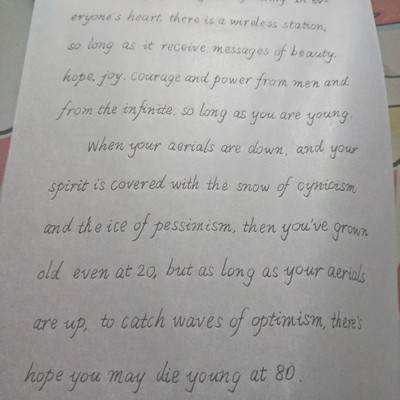 in ev-
eryone's heart, there is a wireless station,
so long as it receive messages of beauty,
hope, joy, courage and power from men and
from the infinite, so long as you are young.
When your aerials are down, and your
spirit is covered with the snow of cynicism
and the ice of pessimism, then you've grown
old even at 20, but as long as your aerials
are up, to catch waves of optimism, there's
hope you may die young at 80.